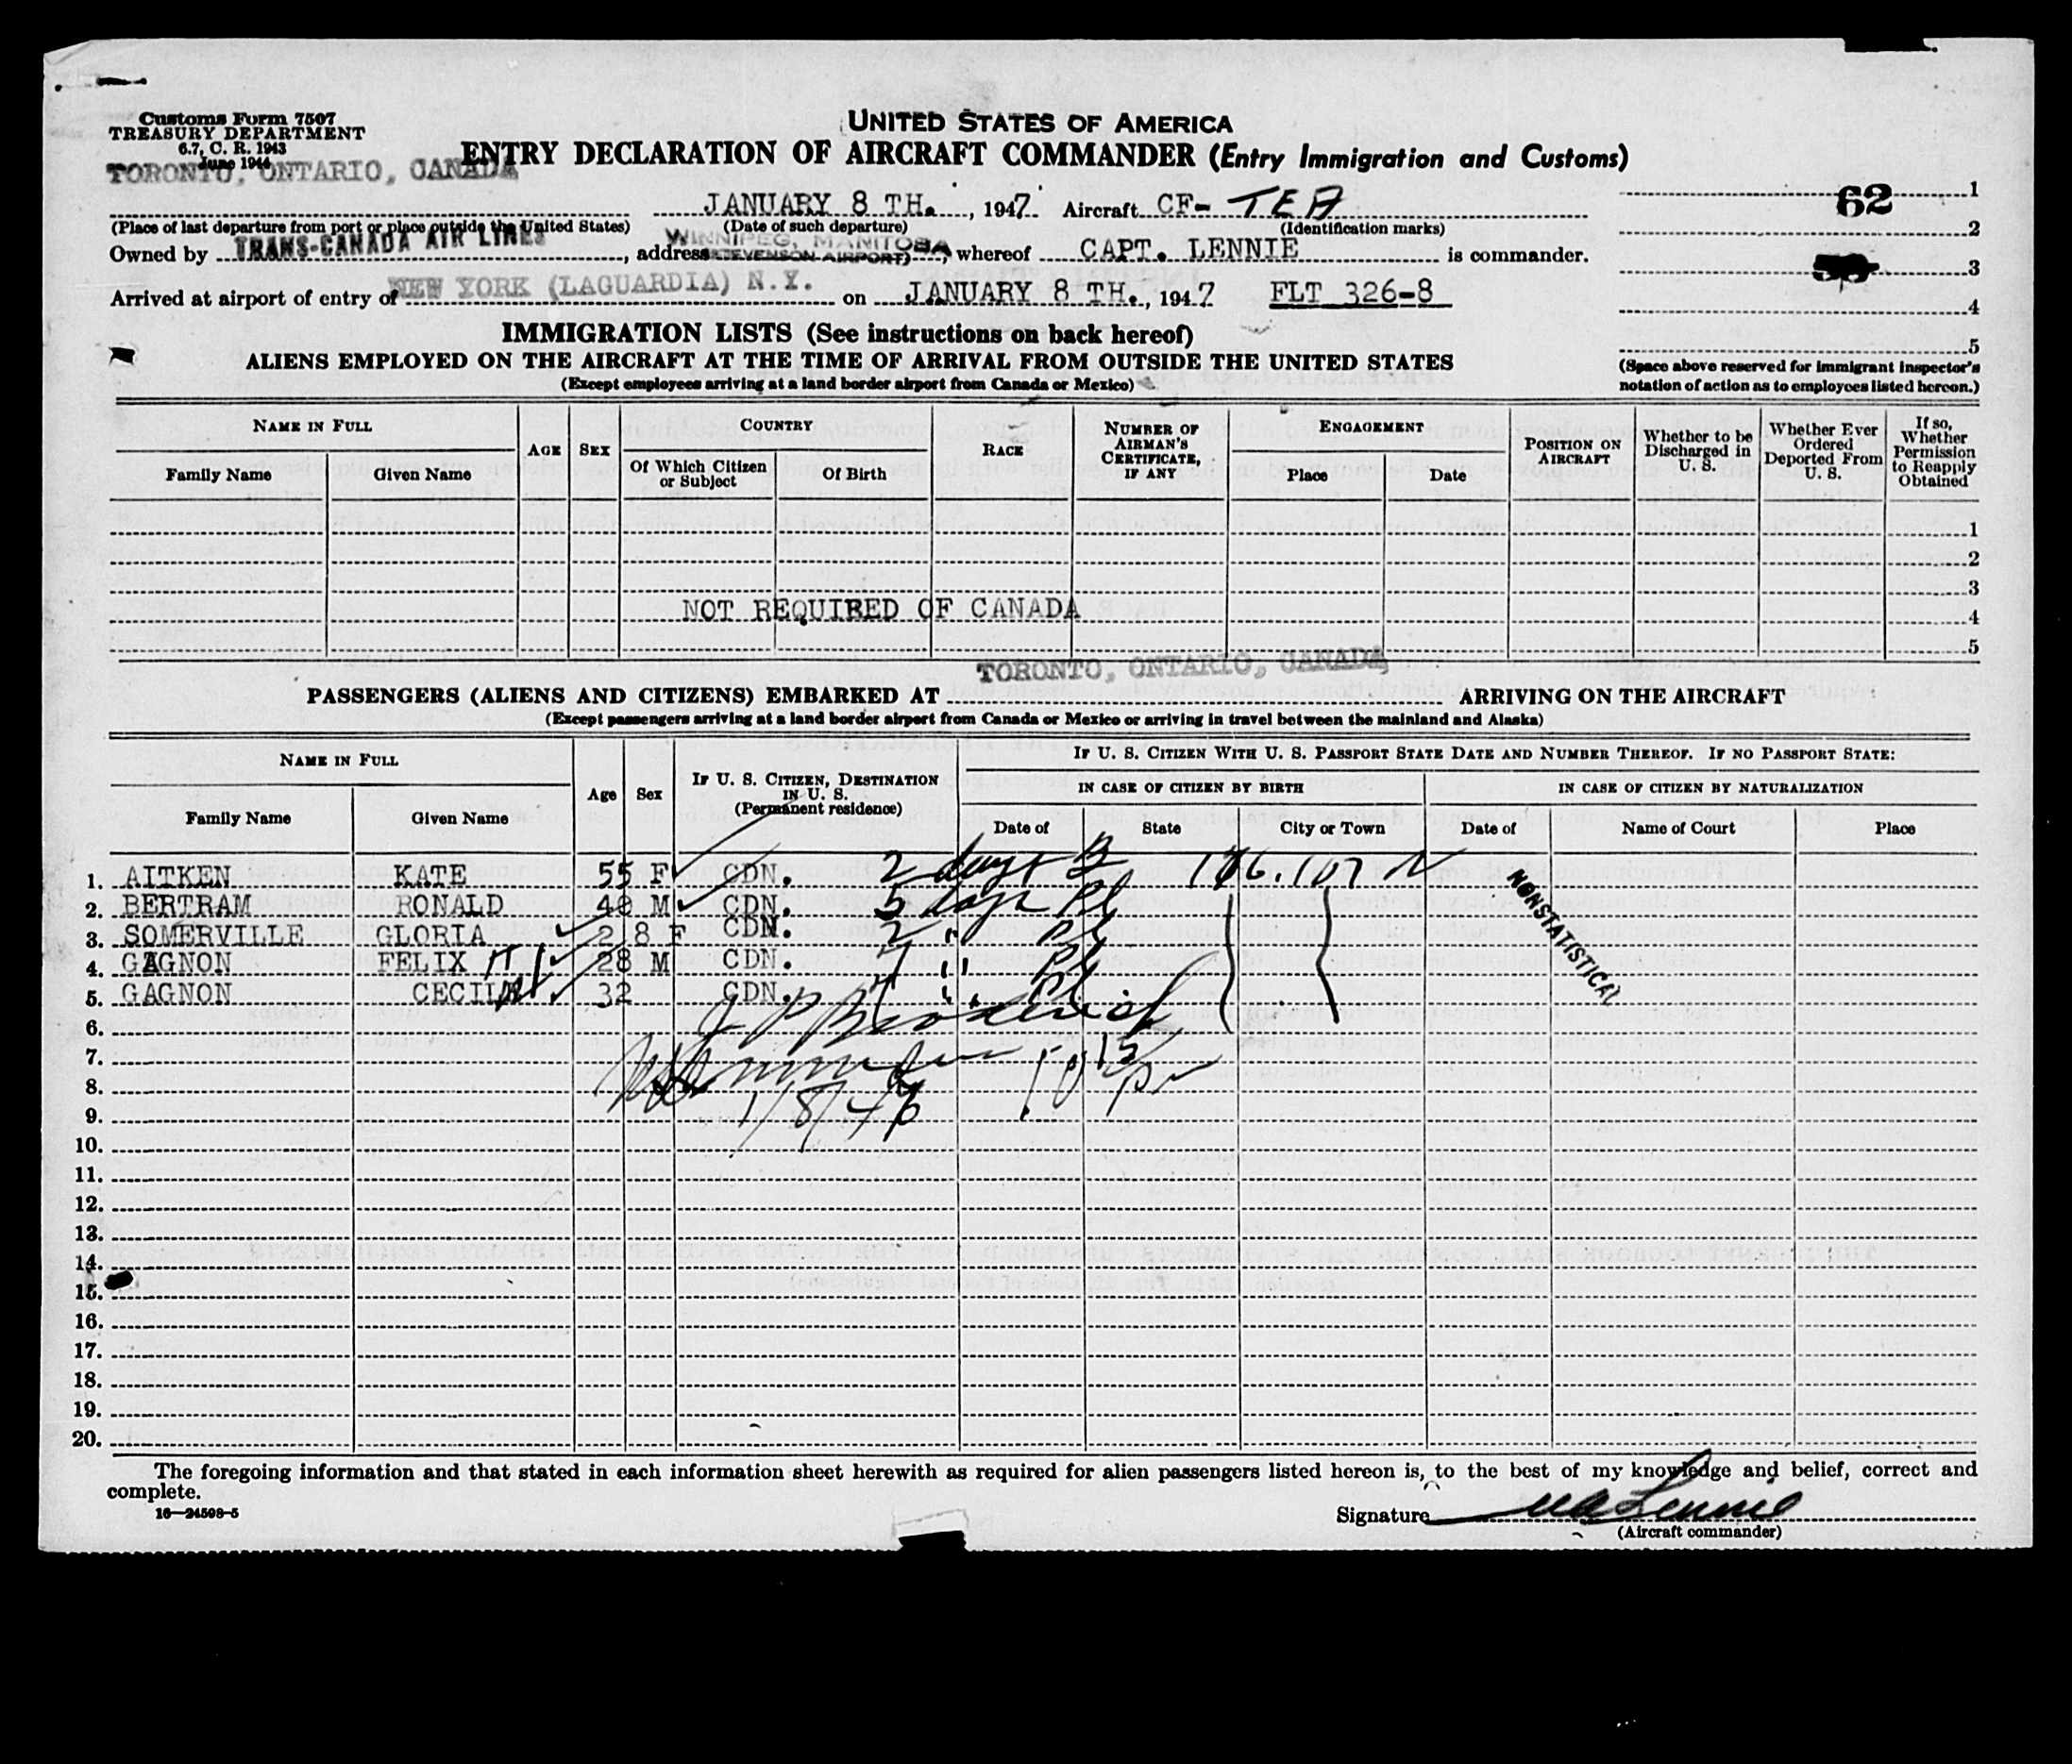 Customs Form 7507
TREASURY DEPARTMENT
6.7, C. R. 1943
June 1944
UNITED STATES OF AMERICA
ENTRY DECLARATION OF AIRCRAFT COMMANDER (Entry Immigration and Customs)
TORONTO, ONTARIO, CANADA
JANUARY 8 TH. , 1947. Aircraft CF- TEA
62
1
(Place of last departure from port or place outside the United States) (Date of such departure) (Identification marks)
2
Owned by TRANS-CANADA AIR LINES , address WINNIPEG, MANITOBA (STEVENSON AIRPORT) , whereof CAPT. LENNIE is commander.
3
Arrived at airport of entry of NEW YORK (LAGUARDIA) N.Y. on JANUARY 8 TH. , 1947 FLT 326-8
4
IMMIGRATION LISTS (See instructions on back hereof)
5
ALIENS EMPLOYED ON THE AIRCRAFT AT THE TIME OF ARRIVAL FROM OUTSIDE THE UNITED STATES
(Except employees arriving at a land border airport from Canada or Mexico)
(Space above reserved for immigrant inspector's notation of action as to employees listed hereon.)
NAME IN FULL
Family Name
Given Name
AGE
SEX
COUNTRY
Of Which Citizen or Subject
Of Birth
RACE
NUMBER OF AIRMAN'S CERTIFICATE, IF ANY
ENGAGEMENT
Place
Date
POSITION ON AIRCRAFT
Whether to be Discharged in U. S.
Whether Ever Ordered Deported From U. S.
If so, Whether Permission to Reapply Obtained
1
2
3
NOT REQUIRED OF CANADA
4
5
TORONTO, ONTARIO, CANADA
PASSENGERS (ALIENS AND CITIZENS) EMBARKED AT ARRIVING ON THE AIRCRAFT
(Except passengers arriving at a land border airport from Canada or Mexico or arriving in travel between the mainland and Alaska)
NAME IN FULL
Family Name
Given Name
Age
Sex
IF U. S. CITIZEN, DESTINATION IN U. S.
(Permanent residence)
IF U. S. CITIZEN WITH U. S. PASSPORT STATE DATE AND NUMBER THEREOF. IF NO PASSPORT STATE:
IN CASE OF CITIZEN BY BIRTH
IN CASE OF CITIZEN BY NATURALIZATION
Date of
State
City or Town
Date of
Name of Court
Place
1. AITKEN KATE 55 F CDN. 2 days
2. BERTRAM RONALD 40 M CDN. 5 days
3. SOMERVILLE GLORIA 28 F CDN. 2 "
4. GAGNON FELIX 28 M CDN. 7 "
5. GAGNON CECILE 32 CDN. 7 "
NONSTATISTICAL
6.
7.
8.
9.
10.
11.
12.
13.
14.
15.
16.
17.
18.
19.
20.
The foregoing information and that stated in each information sheet herewith as required for alien passengers listed hereon is, to the best of my knowledge and belief, correct and
complete.
16—24598-5
Signature Lennie
(Aircraft commander)